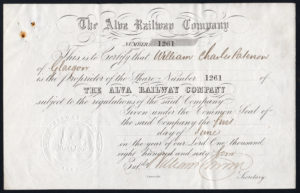 The Alva Railway Company
NUMBER 1261
This is to Certify that William Charles Paterson
of Glasgow
is the Proprietor of the Share Number 1261 of
THE ALVA RAILWAY COMPANY
subject to the regulations of the said Company
Given under the Common Seal of
the said Company the first
day of June
in the year of our Lord One thousand
eight hundred and sixty four
William
Secretary